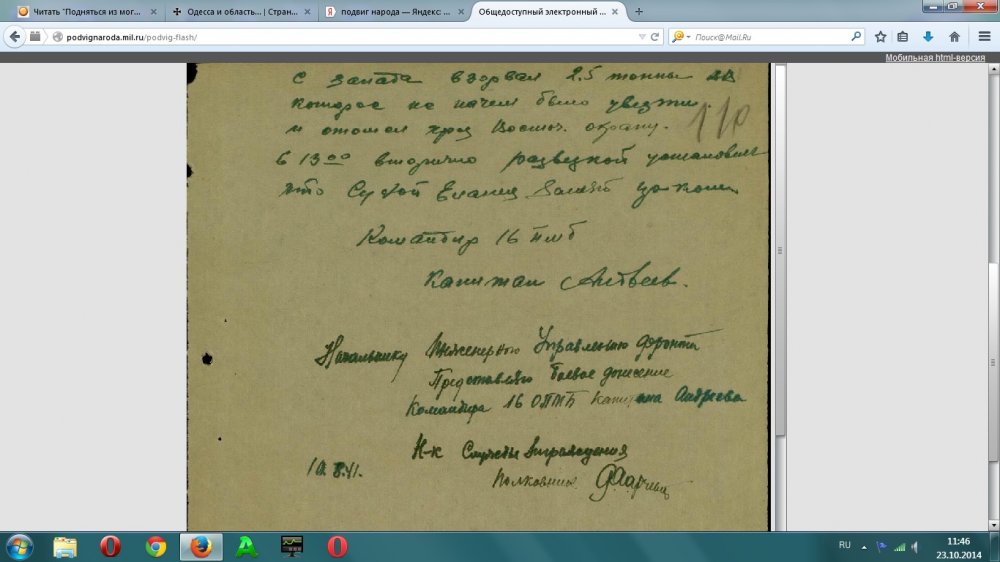 Читать "Подняться из мог...
Одесса и область... | Стран...
подвиг народа — Яндекс: ...
Общедоступный электронный ...
podvignaroda.mil.ru/podvig-flash/
Поиск@Mail.Ru
Мобильная html-версия
с запада взорвал 2.5 тонны ВВ
которое не на чем было увезти
и отошел через Восточ. окраину.
110
в 13 00 вторично разведкой установил
что Сухой Еланец занят
Командир 16 пмб
Капитан
Начальнику Инженерного Управления фронта
Представляю боевое донесение
Командира 16 ОПМБ капитана Андреева
Н-к Службы Заграждения
10.8.41.
Полковник
RU
11:46
23.10.2014